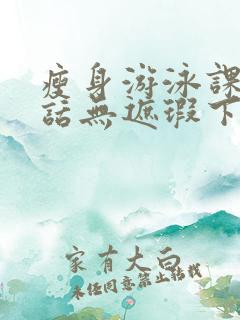 瘦身游泳課
話無遮瑕下
家有大白
未任同意禁止转载